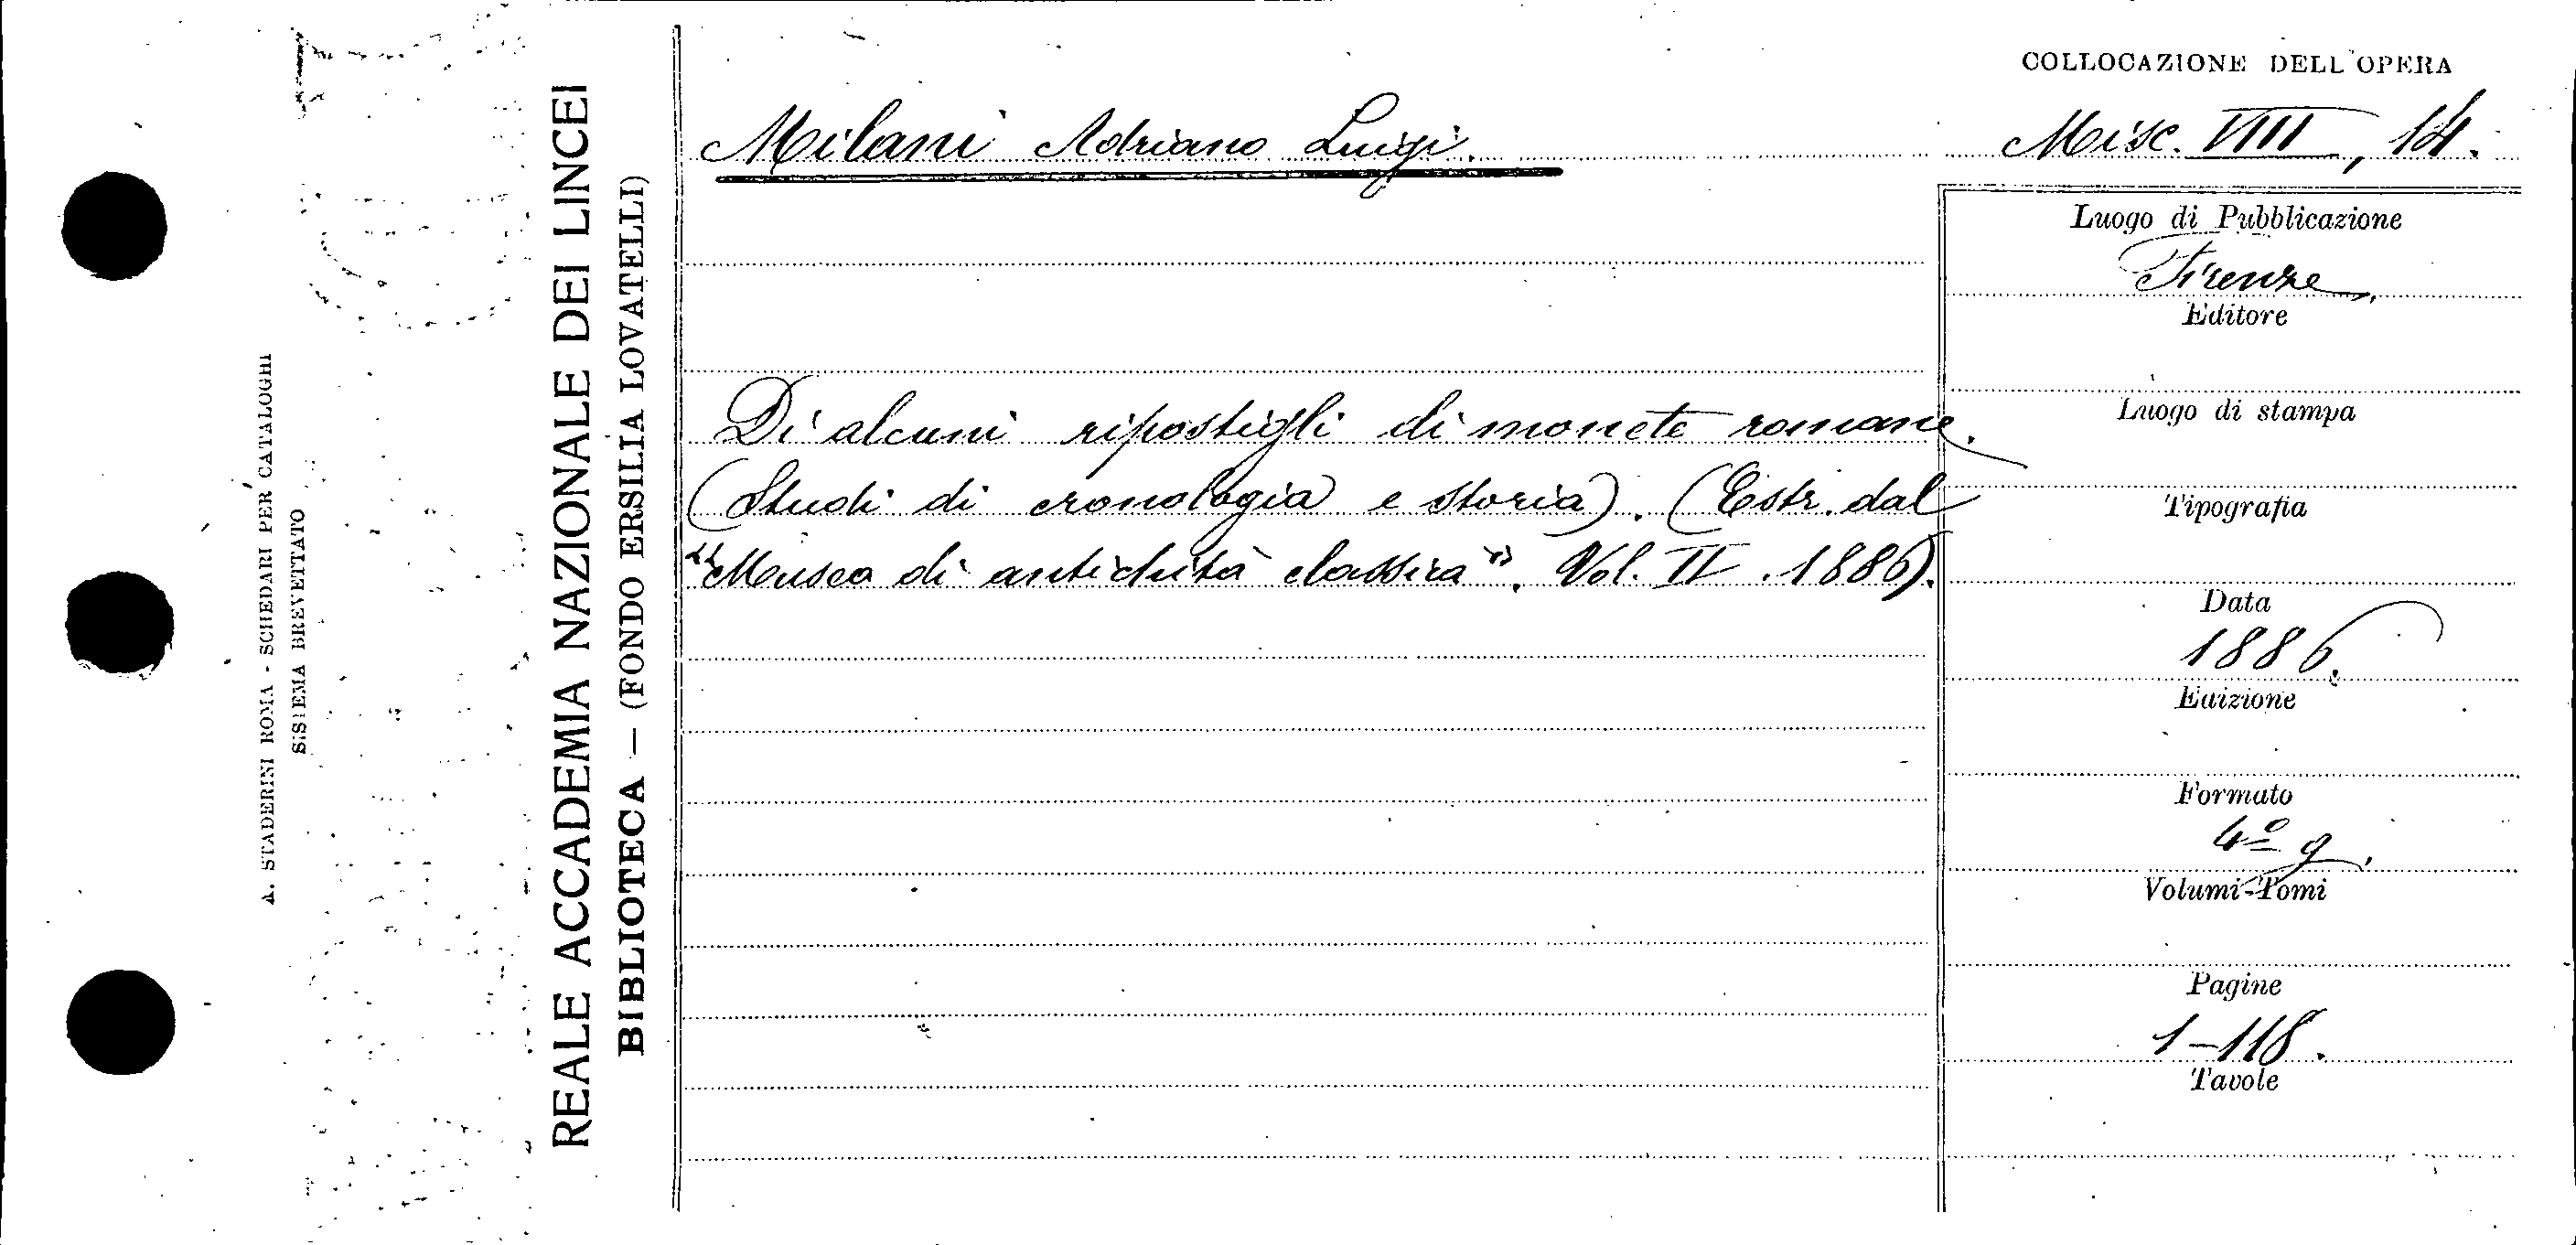 COLLOCAZIONE DELL'OPERA
Milani Adriano Luigi.
Misc. VIII, 14.
Di alcuni ripostigli di monete romane.
(Studi di cronologia e storia). (Estr. dal
"Museo di antichità classica". Vol. II. 1886).
Luogo di Pubblicazione
Firenze
Editore
Luogo di stampa
Tipografia
Data
1886.
Edizione
Formato
4º g.
Volumi-Tomi
Pagine
1-118.
Tavole
REALE ACCADEMIA NAZIONALE DEI LINCEI
BIBLIOTECA — (FONDO ERSILIA LOVATELLI)
A. STADERINI ROMA - SCHEDARI PER CATALOGHI
SISTEMA BREVETTATO